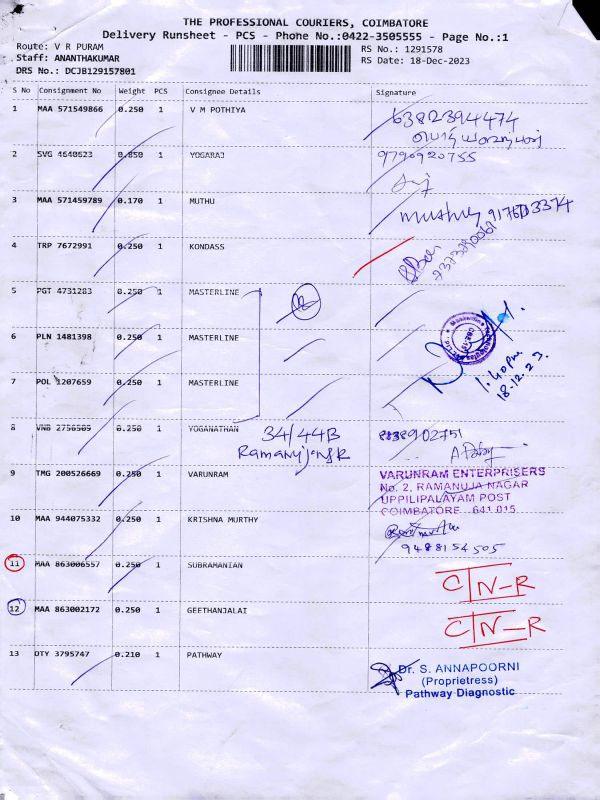 THE PROFESSIONAL COURIERS, COIMBATORE
Delivery Runsheet - PCS - Phone No.:0422-3505555 - Page No.:1
Route: V R PURAM
RS No.: 1291578
Staff: ANANTHAKUMAR
RS Date: 18-Dec-2023
DRS No.: DCJB129157801
S No Consignment No Weight PCS Consignee Details Signature
1 MAA 571549866 0.250 1 V M POTHIYA 6382394474
2 SVG 4640623 0.850 1 YOGARAJ 9790920755
3 MAA 571459789 0.170 1 MUTHU
4 TRP 7672991 0.250 1 KONDASS
5 PGT 4731283 0.250 1 MASTERLINE
6 PLN 1481398 0.250 1 MASTERLINE
7 POL 1207659 0.250 1 MASTERLINE
1.40pm
18.12.23.
8 VNB 2756509 0.250 1 YOGANATHAN 34/44B
9 TMG 200526669 0.250 1 VARUNRAM
VARUNRAM ENTERPRISERS
No. 2, RAMANUJA NAGAR
UPPILIPALAYAM POST
COIMBATORE - 641 015
10 MAA 944075332 0.250 1 KRISHNA MURTHY
9488154505
11 MAA 863006557 0.250 1 SUBRAMANIAN CTN-R
12 MAA 863002172 0.250 1 GEETHANJALAI CTN-R
13 DTY 3795747 0.210 1 PATHWAY
Dr. S. ANNAPOORNI
(Proprietress)
Pathway Diagnostic